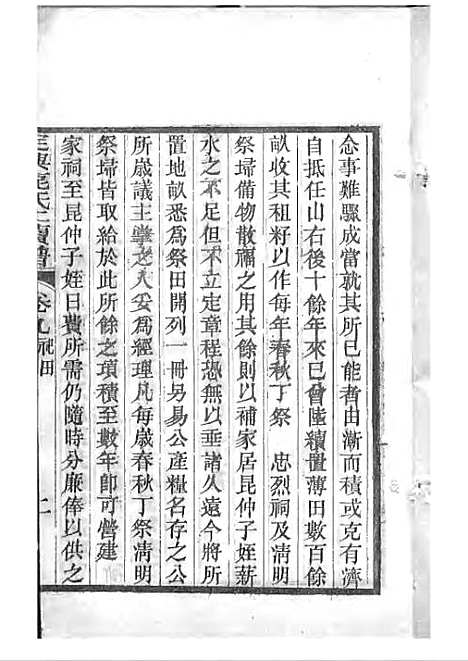 念事難驟成當就其所已能者由漸而積或克有濟
自抵任山右後十餘年來已曾陸續置薄田數百餘
畝收其租籽以作每年春秋丁祭 忠烈祠及清明
祭埽備物散禰之用其餘則以補家居昆仲子姪薪
水之不足但大位定章程恐無以垂諸久遠今將所
置地畝悉為祭田開列一冊另易公產糧名存之公
所歲議主之人妥為經理凡每歲春秋丁祭清明
祭埽皆取給於此所餘之項積至數年即可營建
家祠至昆仲子姪日費所需仍隨時分廉俸以供之
氏二續譜 卷九 祀田 二